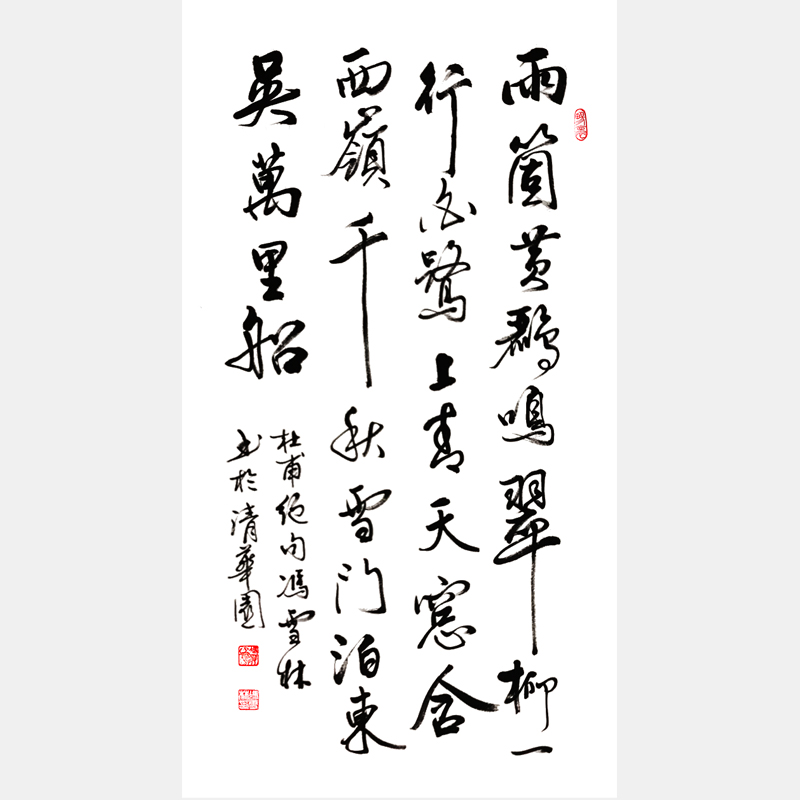 兩箇黄鸝鳴翠柳一
行白鷺上青天窓含
西嶺千秋雪門泊東
吴萬里船
杜甫绝句馮雪林
书於清華園